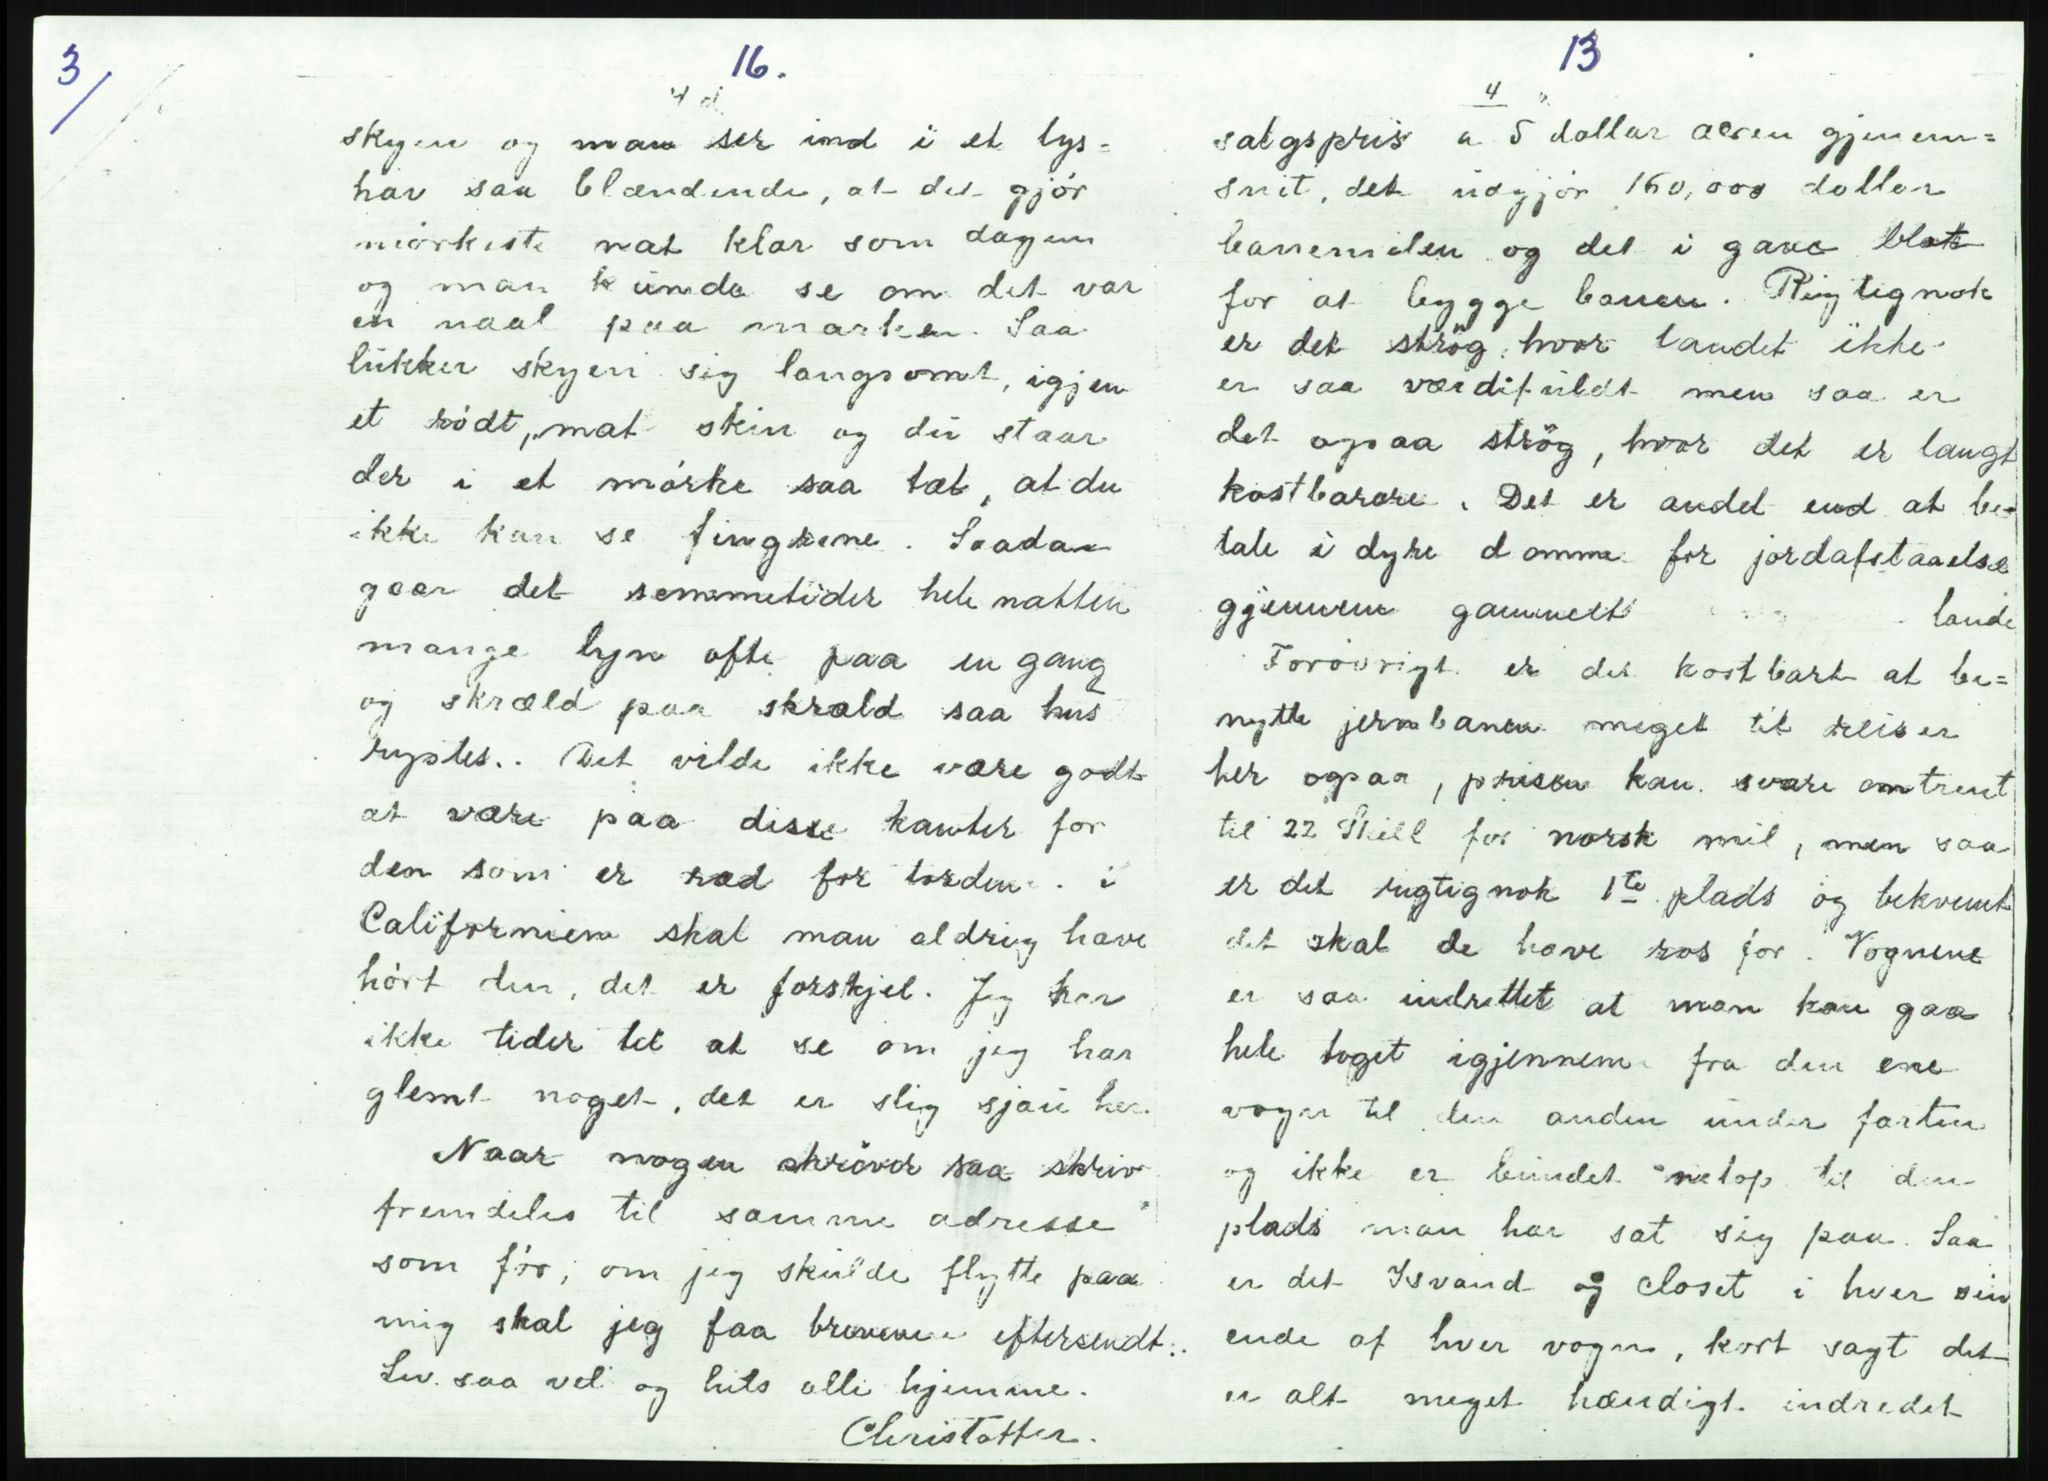 3/
16.
4 d
skyen og man ser ind i et lys=
hav saa blændende, at det gjør
mørkeste nat klar som dagen
og man kunde se om det var
en naal paa marken. Saa
lukker skyen sig langsomt, igjen
et rødt, mat skin og du staar
der i et mørke saa tæt, at du
ikke kan se fingrene. Saadan
gaar det sommetider hele natten
mange lyn ofte paa en gang
og skræld paa skræld saa hus
rystes.. Det vilde ikke være godt
at være paa disse kanter for
den som er ræd for torden. i
Californien skal man aldrig have
hørt den, det er forskjel. Jeg har
ikke tider til at se om jeg har
glemt noget, det er slig sjau her.
Naar nogen skriver saa skriv
fremdeles til samme adresse
som før; om jeg skulde flytte paa
mig skal jeg faa brevene eftersendt..
Lev saa vel og hils alle hjemme.
Christoffer.
13
4
salgspris a 5 dollar acren gjenem=
snit, det udgjør 160,000 dollar
banemilen og det i gave blot
for at bygge banen. Rigtignok
er det strøg, hvor landet ikke
er saa værdifuldt men saa er
det ogsaa strøg, hvor det er langt
kostbarare. Det er andet end at be=
tale i dyre domme for jordafstaaelse
gjennem gammelt lande
Forøvrigt er det kostbart at be=
nytte jernbanen meget til reiser
her ogsaa, prisen kan svare omtrent
til 22 Skill for norsk mil, men saa
er det rigtignok 1te plads og bekvemt
det skal de have ros for. Vognene
er saa indrettet at man kan gaa
hele toget igjennem fra den ene
vogn til den anden under farten
og ikke er bundet netop til den
plads man har sat sig paa. Saa
er det Isvand og closet i hver sin
ende af hver vogn, kort sagt det
er alt meget hændigt indredet